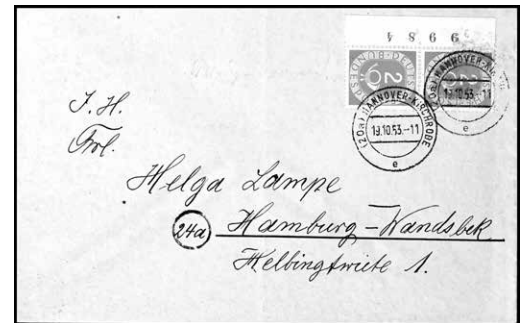 20
(20a) HANNOVER-KIRCHRODE
19.10.53.-11
e
(20a) HANNOVER-
19.10.53.-11
e
J. H.
Frl.
Helga Lampe
24a Hamburg-Wandsbek
Helbingtwiete 1.